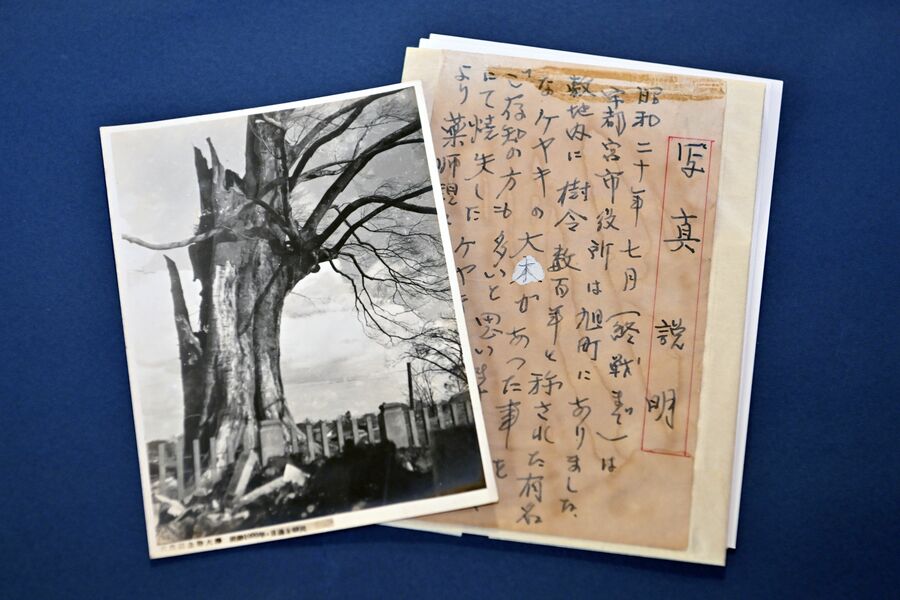 写真説明
昭和二十年七月(終戦まで)は
宇都宮市役所は旭町にありました、
敷地内に樹令数百年と称された有名
なケヤキの大木があつた事を
ご存知の方も多いと思い
にて焼失したケヤ
より薬師